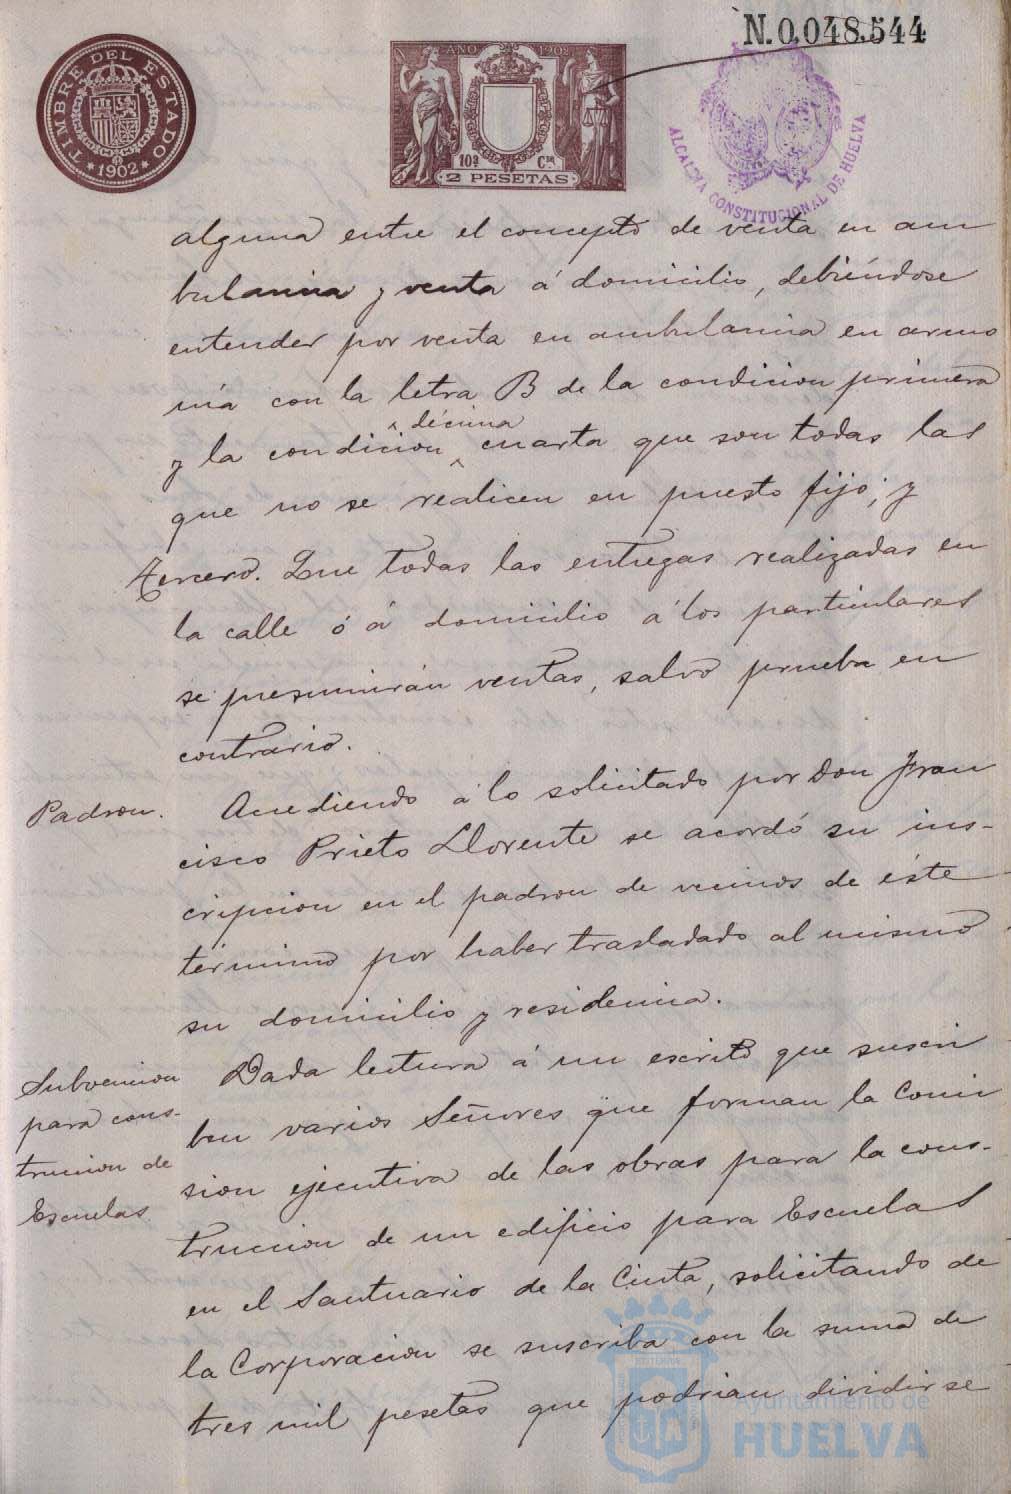 N.0,048,544
TIMBRE DEL ESTADO
*1902*
AÑO 1902
10ª Cse
2 PESETAS
ALCALDIA CONSTITUCIONAL DE HUELVA
alguna entre el concepto de venta en am
bulancia y venta á domicilio, debiéndose
entender por venta en ambulancia en armo
nía con la letra B de la condicion primera
décima
y la condicion cuarta que son todas las
que no se realicen en puesto fijo; y
Tercero. Que todas las entregas realizadas en
la calle ó á domicilio á los particulares
se presumirán ventas, salvo prueba en
contrario.
Padron.
Accediendo á lo solicitado por Don Fran
cisco Prieto Llorente se acordó su ins-
cripcion en el padron de vecinos de éste
término por haber trasladado al mismo
su domicilio y residencia.
Subvencion
para cons-
truccion de
Escuelas
Dada lectura á un escrito que suscri
ben varios Señores que forman la Comi
sion ejecutiva de las obras para la cons-
truccion de un edificio para Escuelas
en el Santuario de la Cinta, solicitando de
la Corporacion se suscriba con la suma de
tres mil pesetas que podrian dividirse
Ayuntamiento de
HUELVA